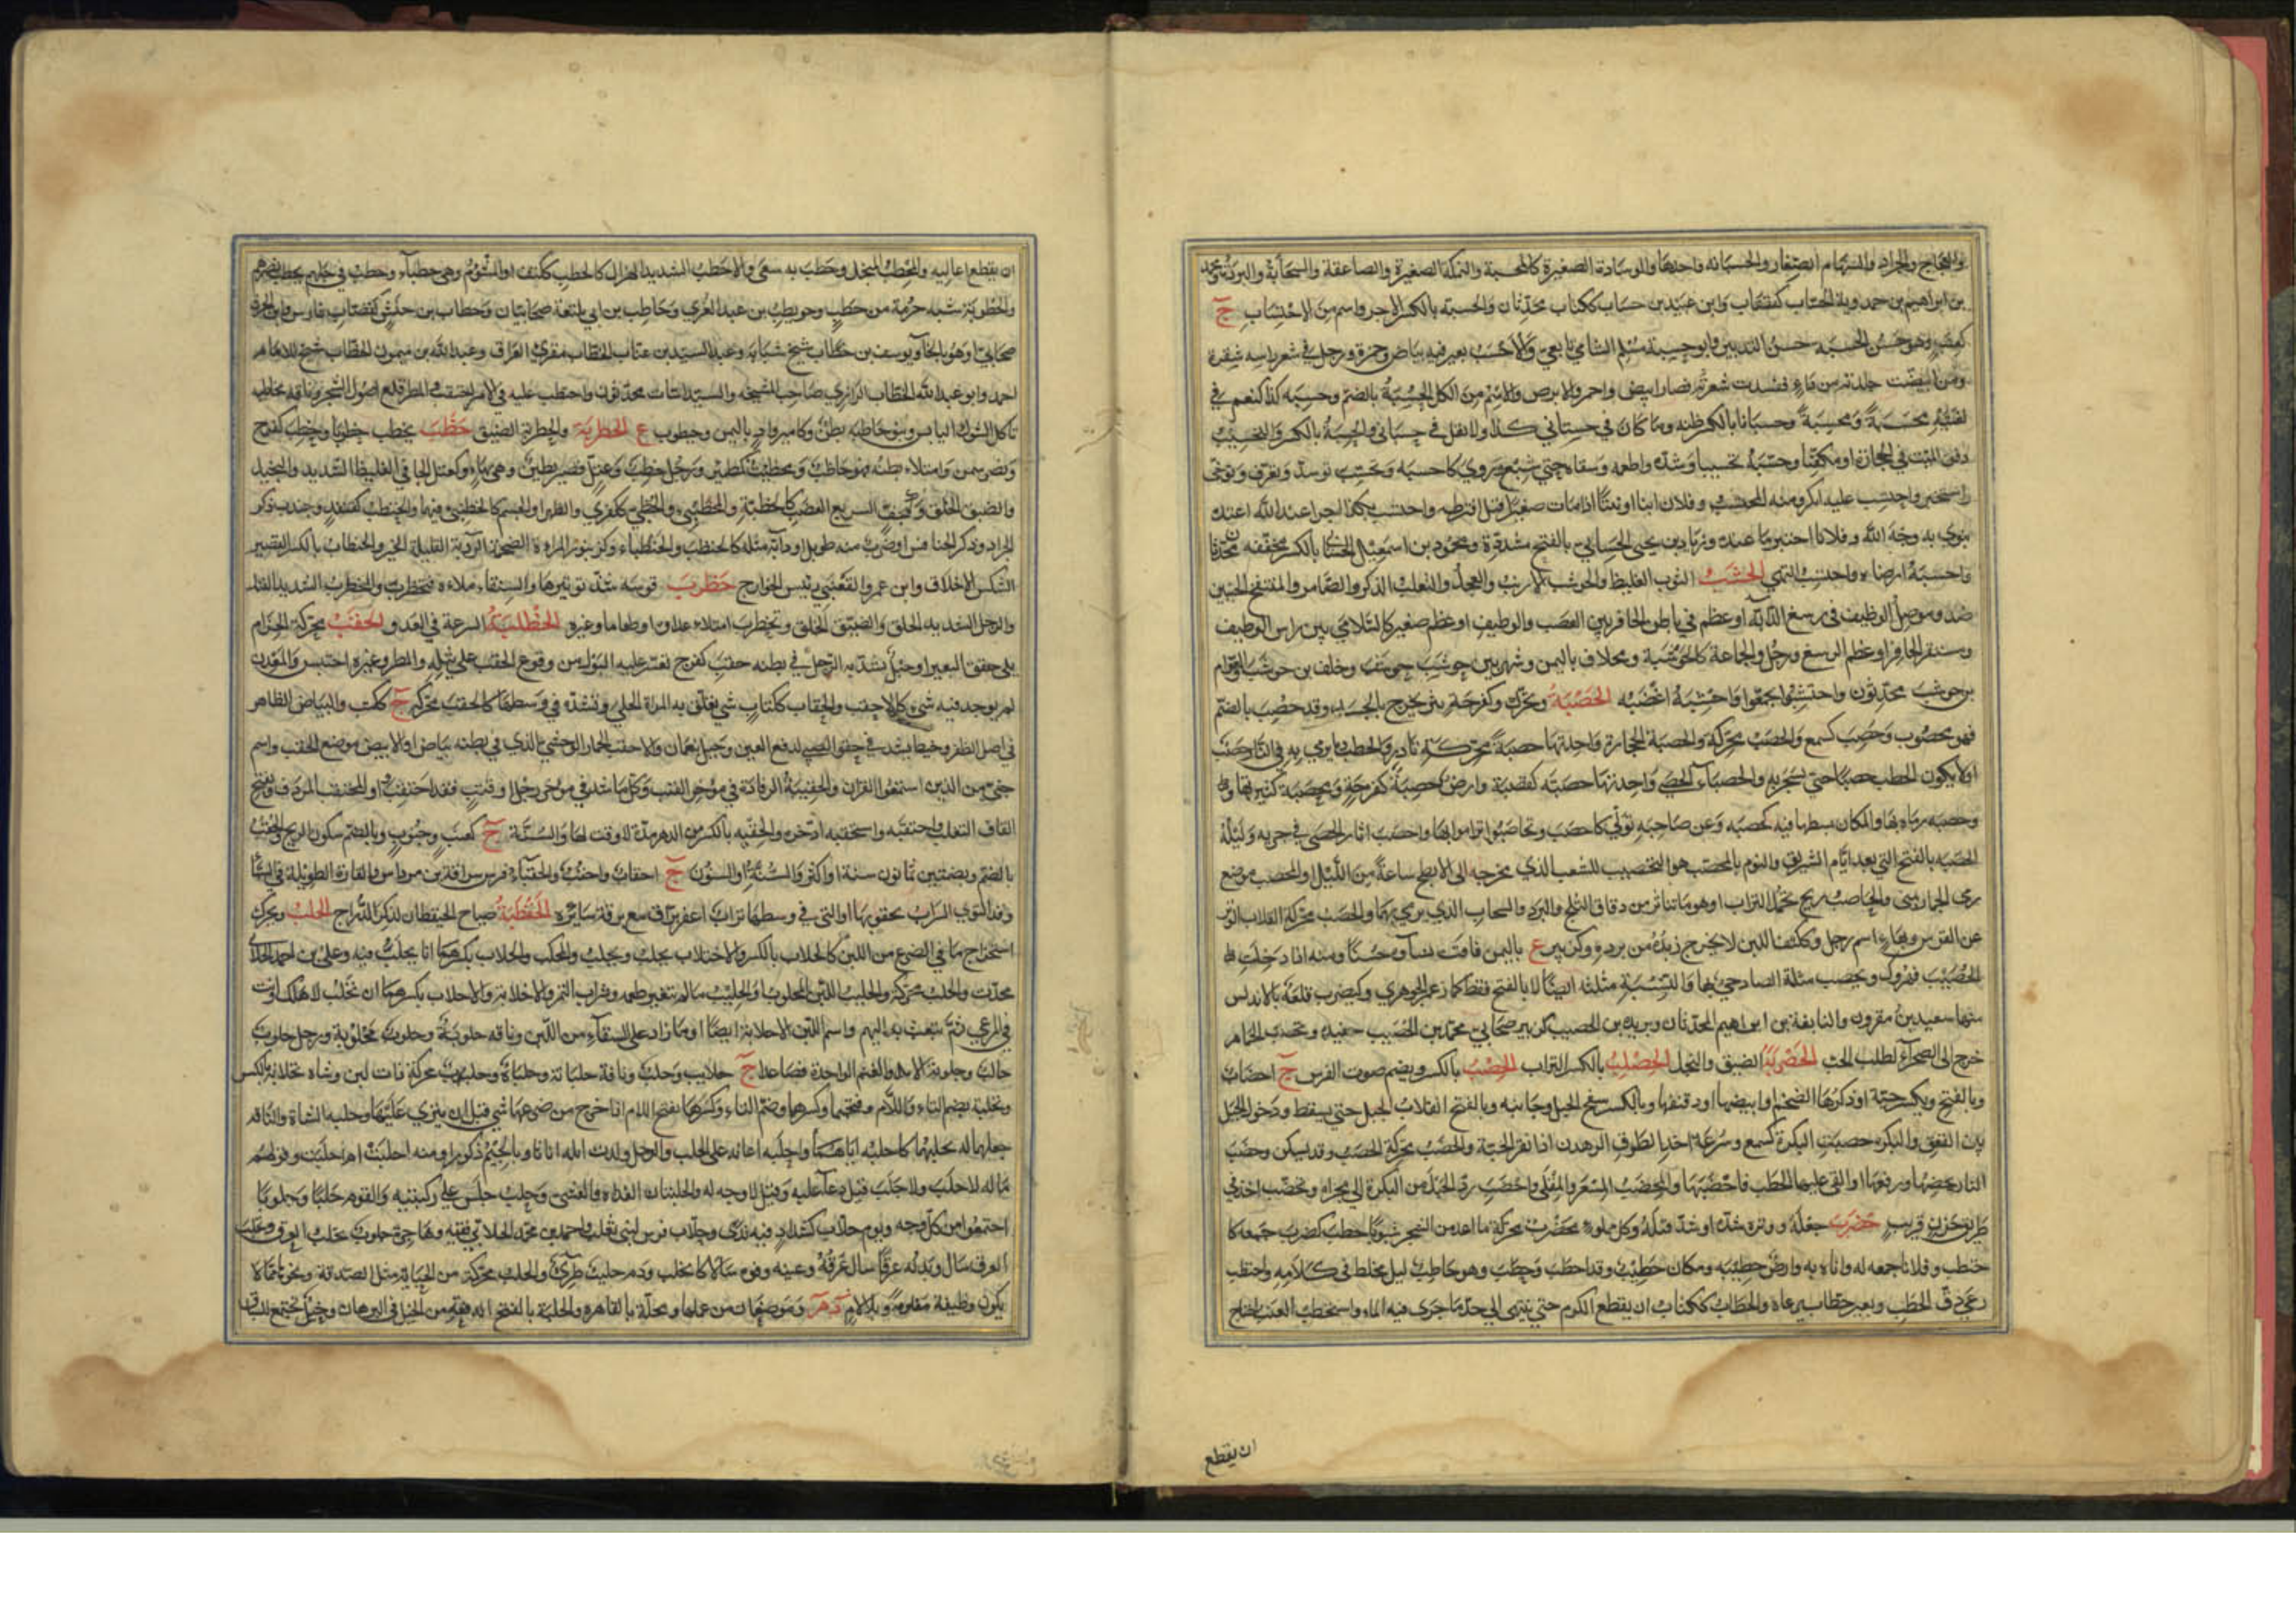 والعجاج والجراد والسهام الصغار والحسبانة واحدها والوسادة الصغيرة كالمحسبة والنملة الصغيرة والصاعقة والسحابة والبردة ومحمد
بن ابراهيم بن حمدويه الحسّاب كقصّاب وابن عبيد بن حساب ككتاب محدّثان والحسبة بالكسر الاجر واسم من الاحتساب ج
كعنب وهو حسن الحسبة حسن التدبير وابو حسبة مسلم الشامي تابعي والاحسب بعير فيه بياض وحمرة ورجل في شعر راسه شقرة
ومن ابيضّت جلدته من داء ففسدت شعرته فصار ابيض واحمر والابرص والاسم من الكل الحسبة بالضم وحسبه كذا كنعم في
لغتيه محسبة ومحسبة وحسبانا بالكسر ظنه وما كان في حسباني كذا ولا تقل في حسابي والحسبة بالكسر والتحسيب
دفن الميت في الحجارة او مكفنا وحسّبه تحسيبا وسّده واطعمه وسقاه حتى شبع وروي كاحسبه وتحسّب توسد وتعرف وتوخى
واستخبر واحتسب عليه انكر ومنه المحتسب وفلان ابنا او بنتا اذا مات صغيرا قيل افترطه واحتسب بكذا اجرا عند الله اعتده
ينوي به وجه الله وفلانا اختبر ما عنده وزياد بن يحيى الحسابي بالفتح مشددة ومحمود بن اسمعيل الحسابي بالكسر مخففة محدثان
واحسبه ارضاه واحتسب انتهى الحشيب الثوب الغليظ والحوشب الارنب والعجل والثعلب الذكر والضامر والمنتفخ الجنبين
ضد وموصل الوظيف في رسغ الدابة او عظم في باطن الحافر بين العصب والوظيف او عظم صغير كالسلامى بين راس الوظيف
ومستقر الحافر او عظم الرسغ ورجل والجماعة كالحوشبة ومخلاف باليمن وشهر بين حوشب حوشب وخلف بن حوشب والعوام
بن حوشب محدثون واحتشبوا تجمعوا واحشبه اغضبه الحصبة ويحرك وكفرحة بثر يخرج بالجسد وقد حصب بالضم
فهو محصوب وحصب كسمع والحصب محركة والحصبة الحجارة واحدتها حصبة محركة نادر والحطب وما يرمى به في النار حصب
اولا يكون الحطب حصبا حتى يسجر به والحصباء الحصى واحدتها حصبة كقصبة وارض حصبة كفرحة ومحصبة كثيرتها
وحصبه رماه بها والمكان بسطها فيه كحصبه وعن صاحبه تولى كاحصب وتحاصبوا تراموا بها واحصب اثار الحصى في جريه وليلة
الحصبة بالفتح التي بعد ايام التشريق والنوم بالمحصب هو التحصيب للشعب الذي مخرجه الى الابطح ساعة من الليل او المحصب موضع
رمى الجمار بمنى والحاصب ريح تحمل التراب او هو ما تناثر من دقاق الثلج والبرد والسحاب الذي يرمي بهما والحصب محركة انقلاب الوتر
عن القوس وبهاء اسم رجل وككتف اللبن لا يخرج زبده من برده وكزبير ع باليمن فاقت نساؤه حسنا ومنه اذا دخلت ارض
الحصيب فهرول ويحصب مثلثة الصاد حي بها والنسبة مثلثة ايضا لا بالفتح فقط كما زعم الجوهري وكيضرب قلعة بالاندلس
منها سعيد بن مقرون والنابغة بن ابراهيم المحدثان وبريدة بن الحصيب كزبير صحابي محمد بن الحصيب حفيده وتحصب الحمام
خرج الى الصحراء لطلب الحب الحصربة الضيق والبخل الحصلب بالكسر التراب الحضب بالكسر ويضم صوت القوس ج احضاب
وبالفتح ويكسر حية او ذكرها الضخم او ابيضها او دقيقها وبالكسر سفح الجبل وجانبه وبالفتح انقلاب الحبل حتى يسقط ودخول الحبل
بين القعو والبكرة حضبت البكرة كسمع وسرعة اخذ الطرق الرهدن اذا نقر الحبة والحضب محركة الحصب وقد يسكن وحضب
النار يحضبها ورفعها او القى عليها الحطب فاحضبها والمحضب المسعر والمقلى واحضب ردّ الحبل من البكرة الى مجراه وتحضب اخذ في
طريق حزن قريب حضرب حبله ووتره شدّه او شدّ فتله وكل مملوء محضرب محركة ما اعد من الشجر شبوبا حطب كضرب جمعه كا
حتطب وفلانا جمعه له واتاه به وارض حطيبة ومكان حطيب وقد احطب وحطب وهو حاطب ليل مخلط في كلامه واحتطب
رعى دق الحطب وبعير حطّاب يرعاه والحطاب ككتاب ان يقطع الكرم حتى ينتهى الى حدّ ما جرى فيه الماء واستحطب العنب احتاج
ان يقطع
ان يقطع اعاليه والمحطب المنجل وحطب به سعى والاحطب الشديد الهزال كالحطب ككتف او المشؤم وهي حطباء وحطب في حبلهم يحطب نصرهم
والحطوبة شبه حزمة من حطب وحويطب بن عبد العزى وحاطب بن ابي بلتعة صحابيان وحطاب بن حنش كقصّاب فارس وابن الحرث
صحابي او هو بالخاء ويوسف بن حطاب شيخ شبابة وعبد السيد بن عتاب الحطاب مقرئ العراق وعبد الله بن ميمون الحطاب شيخ للامام
احمد وابو عبد الله الحطاب الرازي صاحب المشيخة والسداسيات محدثون واحتطب عليه في الامر احتقب والمطر قلع اصول الشجر وناقة محاطبة
تاكل الشوك اليابس وبنو حاطبة بطن وكامير واد باليمن وحيطوب ع الحطربة والحظربة الضيق حظب يحظب حظوبا وحظب كفرح
ونصر سمن وامتلاء بطنه فهو حاظب ومحظئب كمطمئن ورجل حظب وعتل قصير بطين وهي بهاء وكعتل الجافي الغليظ الشديد والبخيل
والضيق الخلق وككتف السريع الغضب كالحظبّة والمحظئبي والحظبى ككفرى والظهر او الجسم كالحظنبى فيهما والحنظب كقنفذ وجندب ذكر
الجراد وذكر الخنافس او ضرب منه طويل او دابة مثله كالحنظب والحنظباء وكزنبور المراة الضخمة الردية القليلة الخير والحنظاب بالكسر القصير
الشكس الاخلاق وابن عمرو الفقعسي رئيس الخوارج حظرب قوسه شدّ توتيرها والسقاء ملاه فتحظرب والمحظرب الشديد الفتل
والرجل الشديد الخلق والضيق الخلق وتحظرب امتلاء عداوة او طعاما وغيره الحظلبة السرعة في العدو الحقب محركة الحزام
يلى حقو البعير او حبل يشد به الرحل في بطنه حقب كفرح تعسر عليه البول من وقوع الحقب على ثيله والمطر وغيره احتبس والمعدن
لم يوجد فيه شيء كالاحقب والحقاب ككتاب شي تعلق به المراة الحلى وتشده في وسطها كالحقب محركة ج ككتب والبياض الظاهر
في اصل الظفر وخيط يشد في حقو الصبي لدفع العين وجبل بعمان والاحقب الحمار الوحشي الذي في بطنه بياض او الابيض موضع الحقب واسم
جني من الذين استمعوا القران والحقيبة الرفادة في مؤخر القتب وكل ما شد في مؤخر رحل او قتب فقد احتقب والمحتقب المردف وبفتح
القاف الثعلب واحتقبه واستحقبه ادّخره والحقبة بالكسر من الدهر مدة لا وقت لها والسنة ج كعنب وحبوب وبالضم سكون الريح والحقب
بالضم وبضمتين ثمانون سنة او اكثر والسنة او السنون ج احقاب واحقب والحقباء فرس سراقة بن مرداس والقارة الطويلة في السماء
وقد التوى السراب بحقويها او التي في وسطها تراب اعفر براق مع برقة سائره الحقطبة صياح الحيقطان لذكر الدراج الحلب ويحرك
استخراج ما في الضرع من اللبن كالحلاب بالكسر والاحتلاب يحلب ويحلب والمحلب والحلاب بكسرهما انا يحلب فيه وعلي بن احمد الحلابي
محدث والحلب محركة والحليب اللبن المحلوب او الحليب ما لم يتغير طعمه وشراب التمر والاحلابة والاحلاب بكسرهما ان تحلب لاهلك وانت
في المرعى ثم تبعث به اليهم واسم اللبن الاحلابة ايضا او ما زاد على السقاء من اللبن وناقة حلوبة وحلوب محلوبة ورجل حلوب
حالب وحلوبة الابل والغنم الواحدة فصاعدا ج حلايب وحلب وناقة حلبانة وحلباة وحلبوت محركة ذات لبن وشاة تحلابة بالكسر
وتحلبة بضم التاء واللام وفتحهما وكسرهما وضم التاء وكسرها بفتح اللام اذا خرج من ضرعها شي قبل ان ينزى عليها وحلبه الشاة والناقة
جعلهما له يحلبهما كاحلبه اياهما واحلبه اعانه على الحلب والرجل ولدت ابله اناثا وبالجيم ذكورا ومنه احلبت ام اجلبت وقولهم
ما له لا حلب ولا جلب قيل دعاء عليه وقيل لا وجه له والحلبتان الغداة والعشي وحلب جلس على ركبتيه والقوم حلبا وحلوبا
اجتمعوا من كل وجه ويوم حلاب كشداد فيه ندى وحلاب فرس لبني تغلب واحمد بن محمد الحلابي فقيه وهاجرة حلوب تحلب العرق وتحلب
العرق سال وبدنه عرقا سال عرقه وعينه وفوه سالا كانحلب ودم حليب طري والحلب محركة من الجباية مثل الصدقة ونحوها مما لا
يكون وظيفة معلومة وبلا لام د م وموضعان من عملها ومحلة بالقاهرة والحلبة بالفتح الدفعة من الخيل في الرهان وخيل تجتمع للسباق